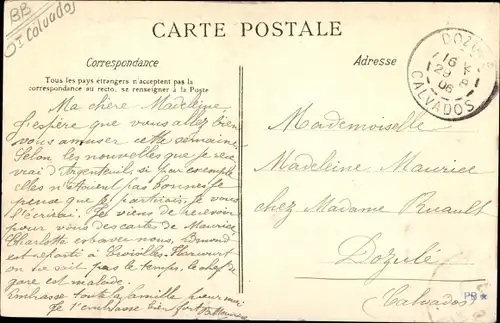 BB
OI Calvados
CARTE POSTALE
Correspondance
Tous les pays étrangers n'acceptent pas la
correspondance au recto, se renseigner à la Poste
Ma chère Madeleine,
J'espère que vous allez bien
vous amuser cette semaine.
Selon les nouvelles que je rece
vrai d'Argenteuil, si par exemple
elles n'étaient pas bonnes je
pense que partirais, je vous
l'écrirai. Je viens de recevoir
pour vous des cartes de Maurice,
Charlotte nous, Edmond
est reparti à Trouville.
on ne sait pas le temps, le chef de
gare est malade.
Embrasse toute la famille pour moi
Je t'embrasse bien fort
Adresse
DOZULÉ
16
29
06
CALVADOS
Mademoiselle
Madeleine Maurice
chez Madame Ruault
Dozulé
(Calvados)
PB